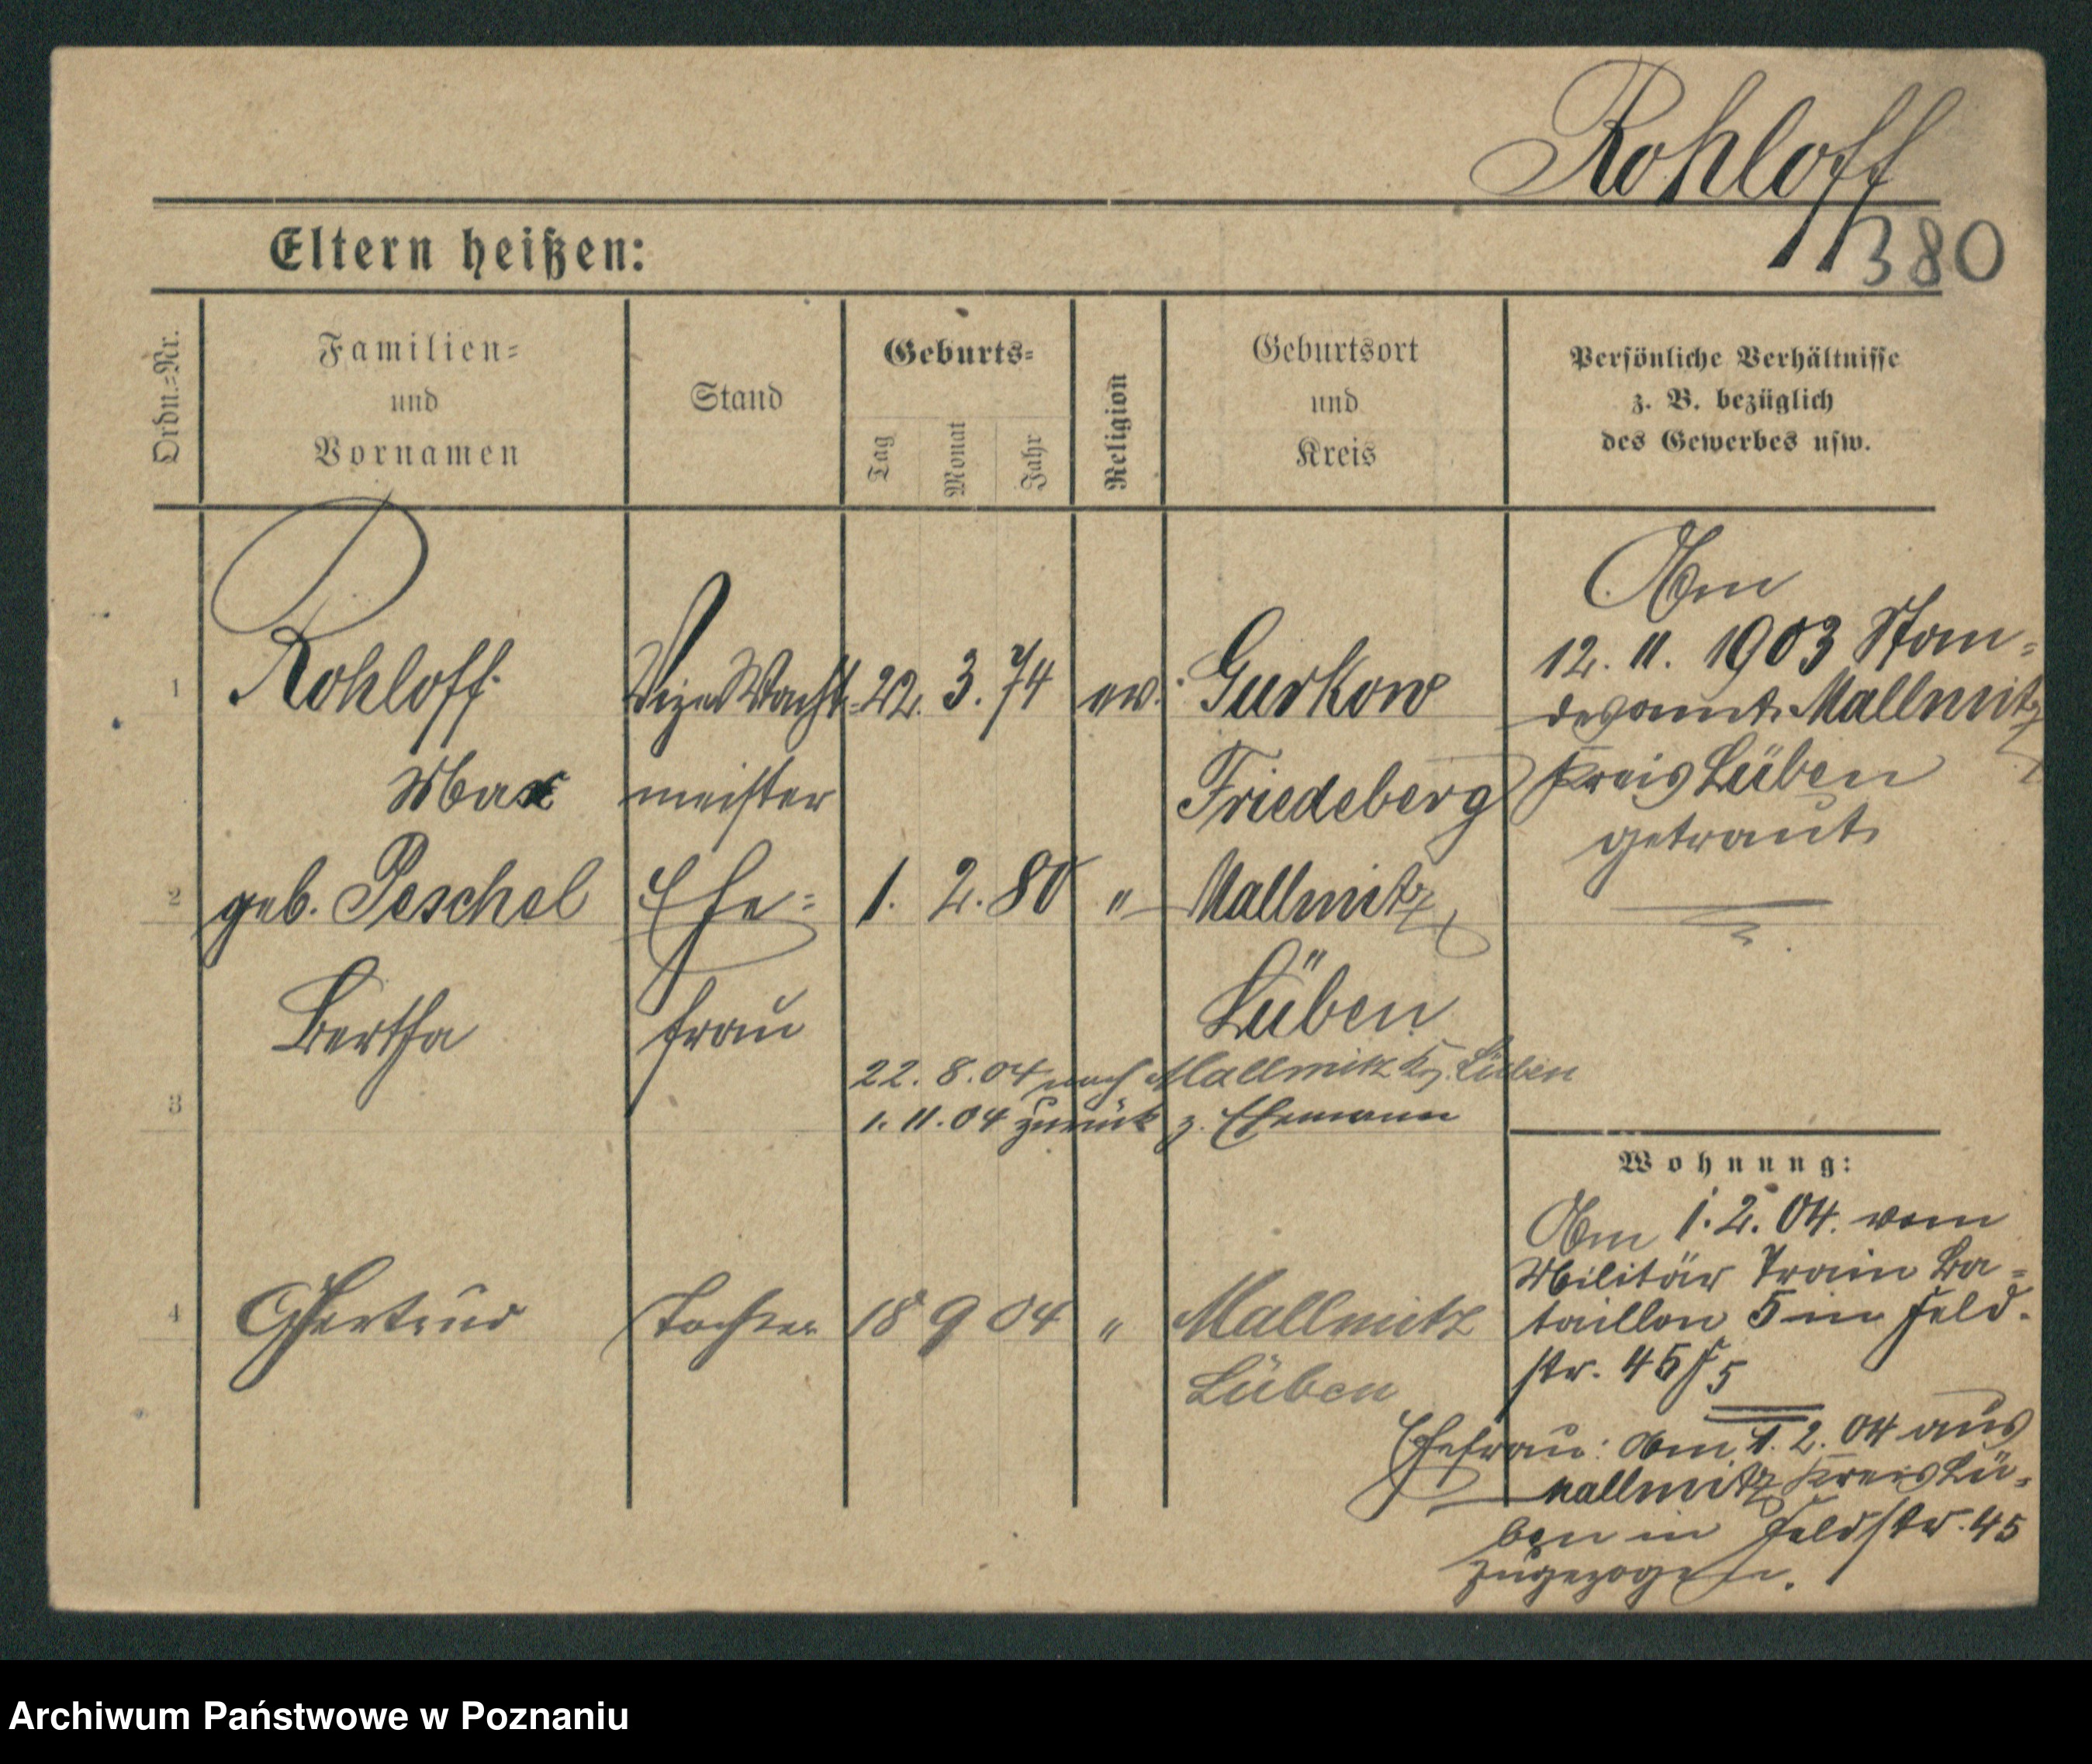 Rohloff
380
Eltern heißen:
Ordn.-Nr.
Familien-
und
Vornamen
Stand
Geburts-
Tag
Monat
Jahr
Religion
Geburtsort
und
Kreis
Persönliche Verhältnisse
z. B. bezüglich
des Gewerbes usw.
1 Rohloff Vize Wacht- 22. 3. 74 ev. Gurkow
Max meister Friedeberg
Am
12. 11. 1903 Stan-
desamt Mallmitz
Kreis Lüben
getraut
2 geb. Peschel Ehe- 1. 2. 80 " Mallmitz
Bertha frau Lüben
22. 8. 04 nach Mallmitz Kr. Lüben
3 1. 11. 04 zurück z. Ehemann
4 Gertrud Tochter 18 9 04 " Mallmitz
Lüben
Wohnung:
Am 1. 2. 04. vom
Militär Train Ba-
taillon 5 in Feld-
str. 45
Ehefrau: Am 1. 2. 04 aus
Mallmitz Kreis Lü-
ben in Feldstr. 45
zugezogen.
Archiwum Państwowe w Poznaniu